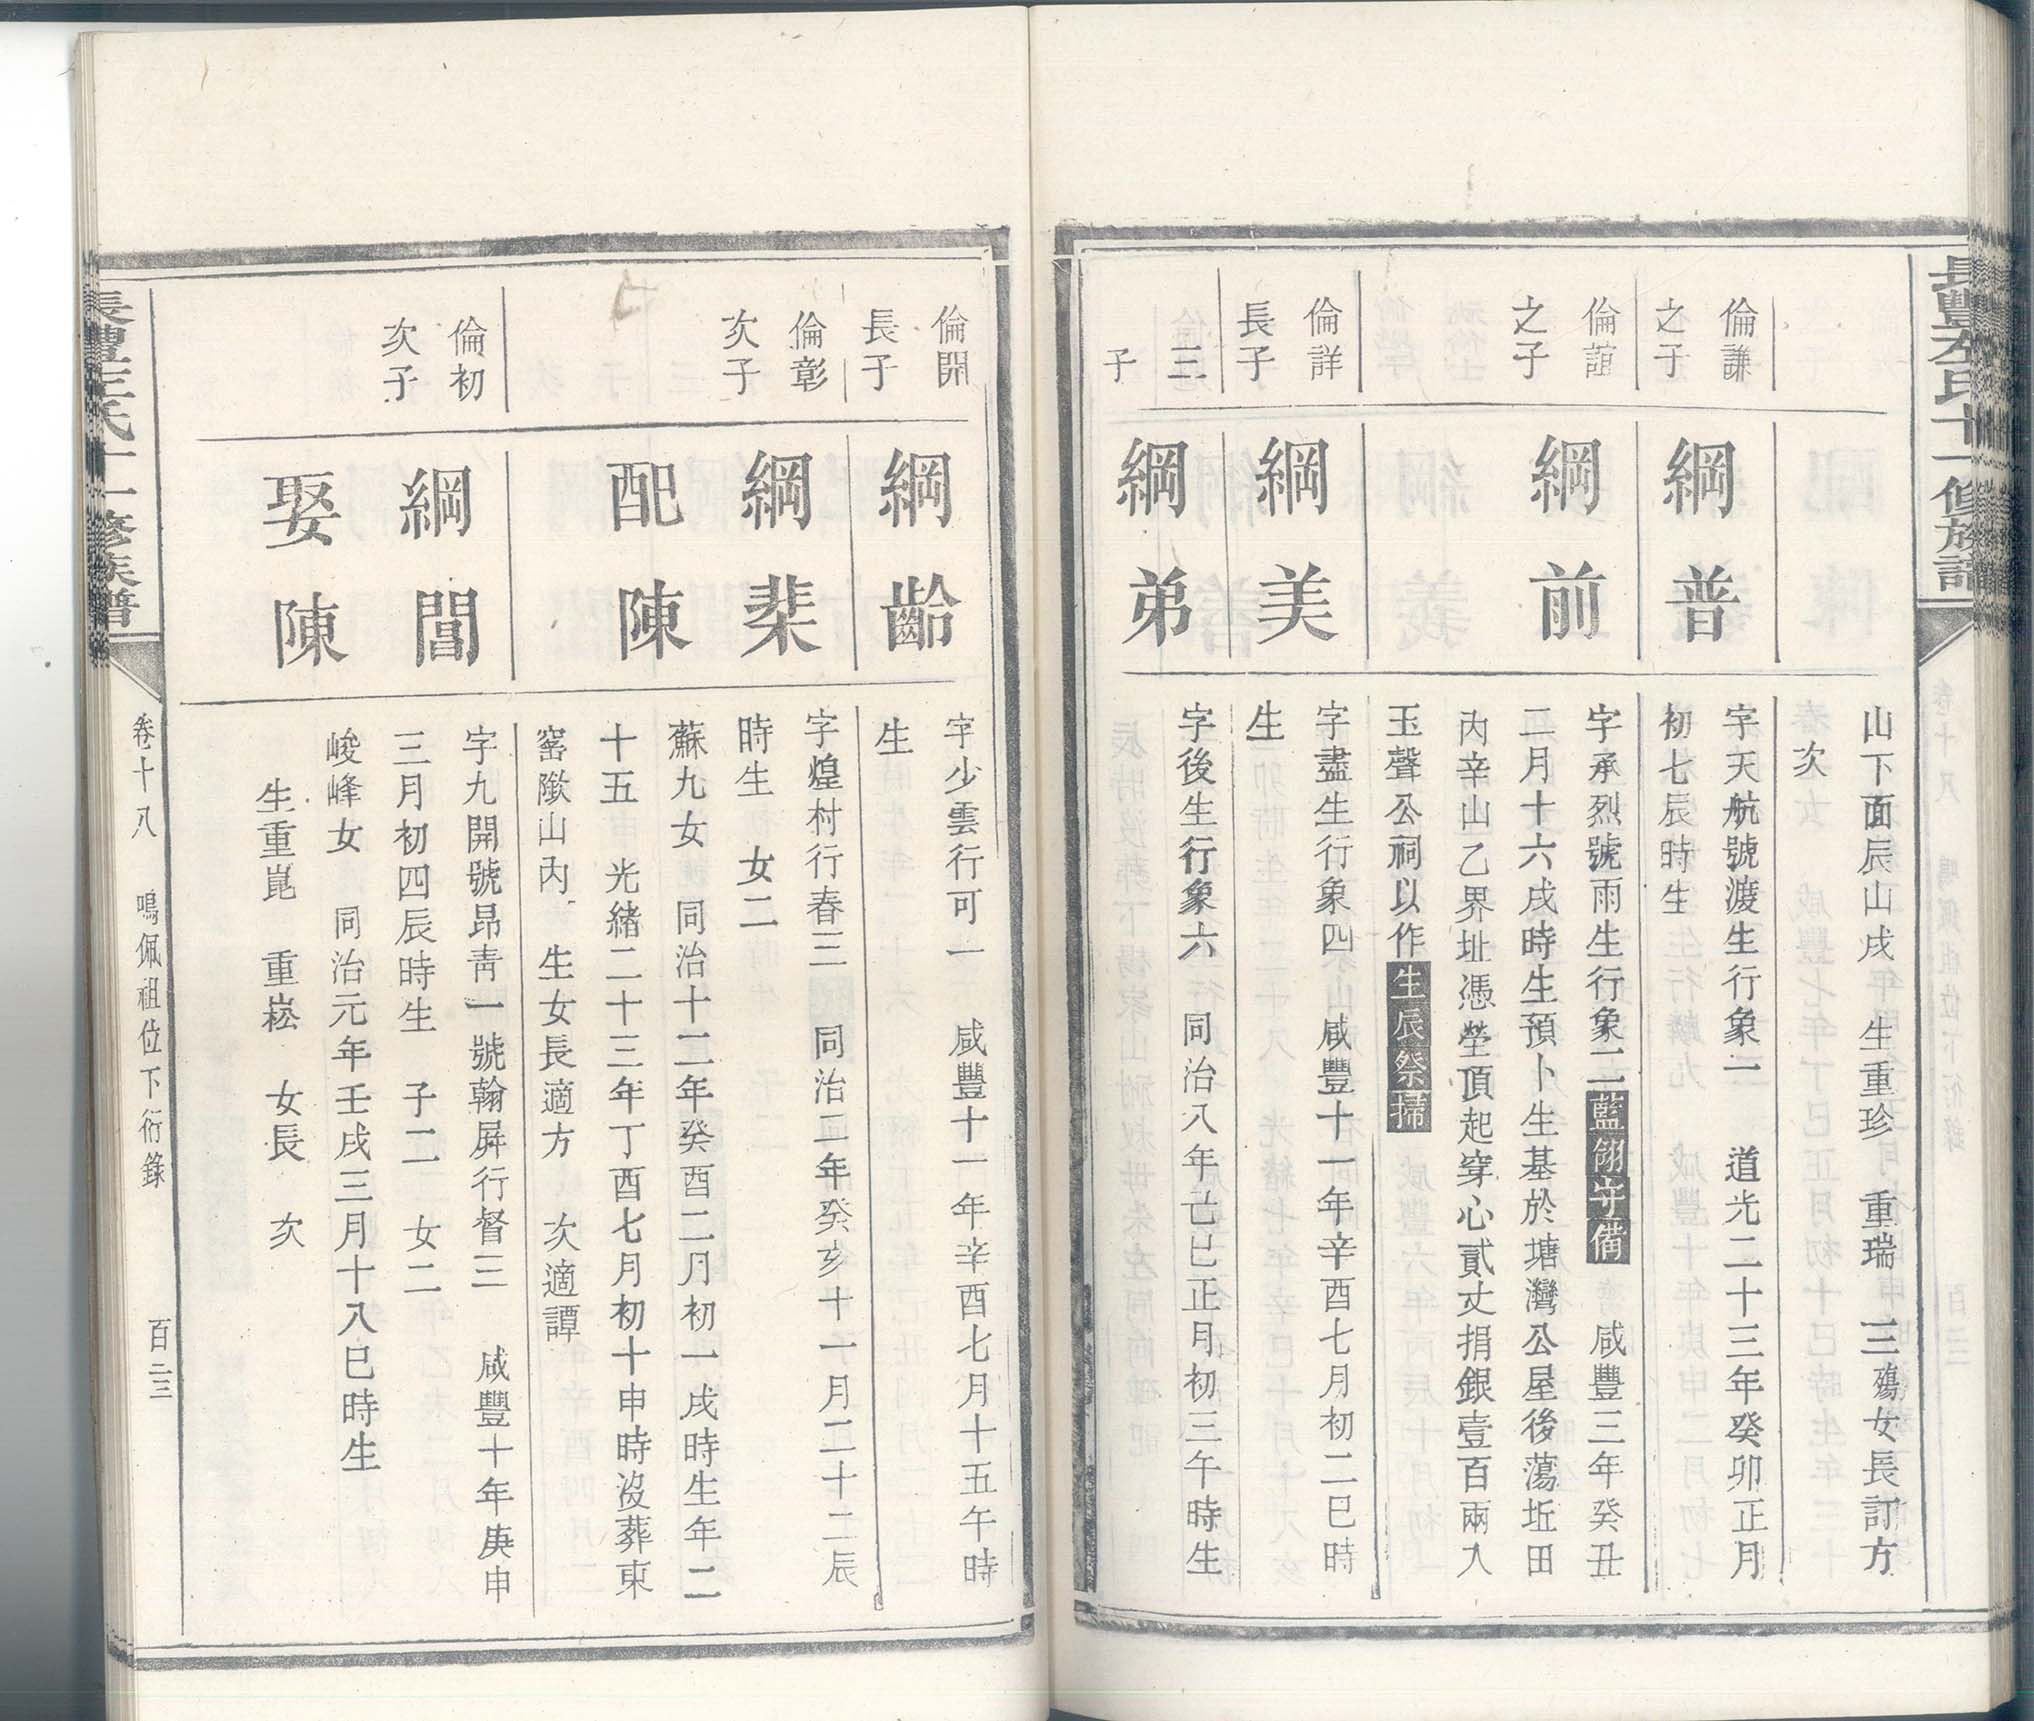 山下面辰山戌　生重珍　重瑞　三殤女長訂方
次
倫謙
之子
綱普
字天航號渡生行象一　道光二十三年癸卯正月
初七辰時生
倫誼
之子
綱前
字承烈號雨生行象二藍翎守備　咸豐三年癸丑
二月十六戌時生預卜生基於塘灣公屋後蕩坵田
內辛山乙界址憑塋頂起穿心貳丈捐銀壹百兩入
玉聲公祠以作生辰祭掃
倫詳
長子
綱美
字盡生行象四　咸豐十一年辛酉七月初二巳時
生
三
子
綱弟
字後生行象六　同治八年己巳正月初三午時生
倫開
長子
綱齡
字少雲行可一　咸豐十一年辛酉七月十五午時
生
倫彰
次子
綱棐
字煌村行春三　同治二年癸亥十一月二十二辰
時生　女二
配陳
蘇九女　同治十二年癸酉二月初一戌時生年二
十五　光緒二十三年丁酉七月初十申時沒葬東
窰山內　生女長適方　次適譚
倫初
次子
綱閶
字九開號昂青一號翰屏行督三　咸豐十年庚申
三月初四辰時生　子二　女二
娶陳
峻峰女　同治元年壬戌三月十八巳時生
生重崑　重崧　女長　次
卷十八　鳴佩祖位下衍錄　百二三